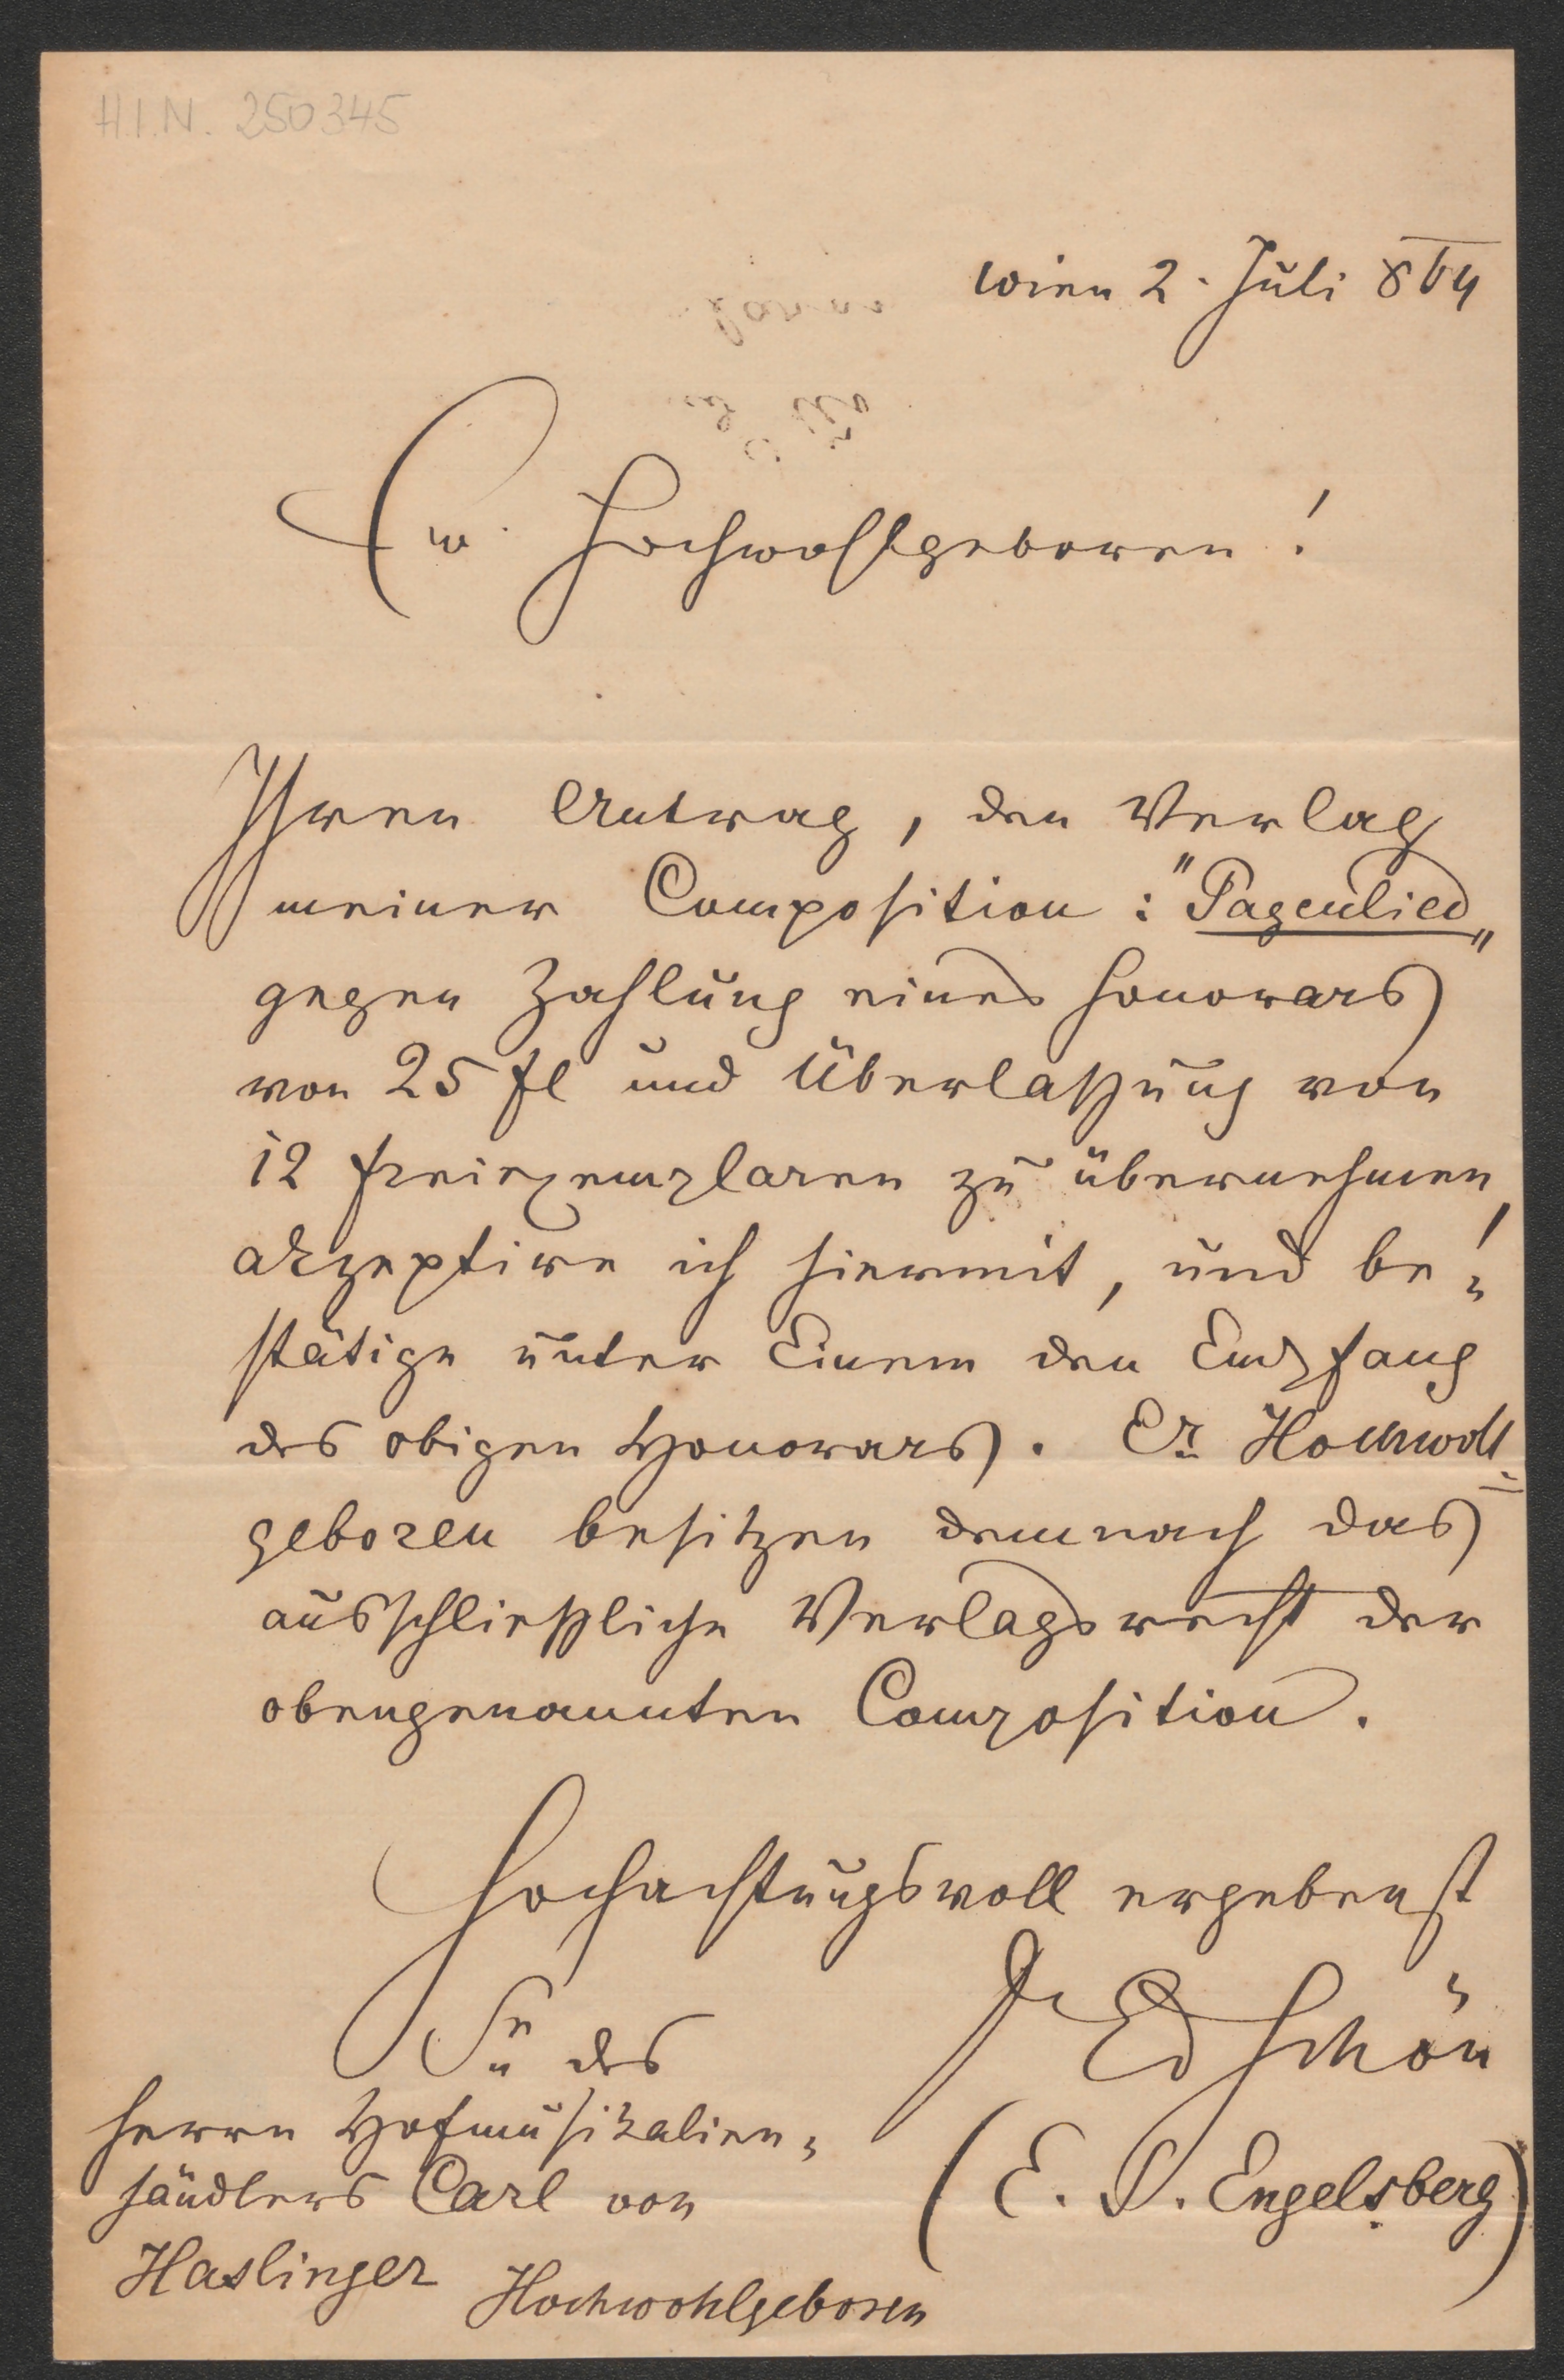 H.I.N. 250345
Wien 2. Juli 864
Ew. Hochwohlgeboren!
Ihren Antrag, den Verlag
meiner Composition: "Pagenlied"
gegen Zahlung eines Honorars
von 25 fl und Überlaßung von
12 Freiexemplaren zu übernehmen,
akzeptire ich hiermit, und be=
stätige unter Einem den Empfang
des obigen Honorars. Er Hochwohl=
geboren besitzen demnach das
ausschließliche Verlagsrecht der
obengenannten Composition.
Hochachtungsvoll ergebenst
Dr Ed Schön
(E. S. Engelsberg)
des
Herrn Hofmusikalien=
händlers Carl von
Haslinger Hochwohlgeboren